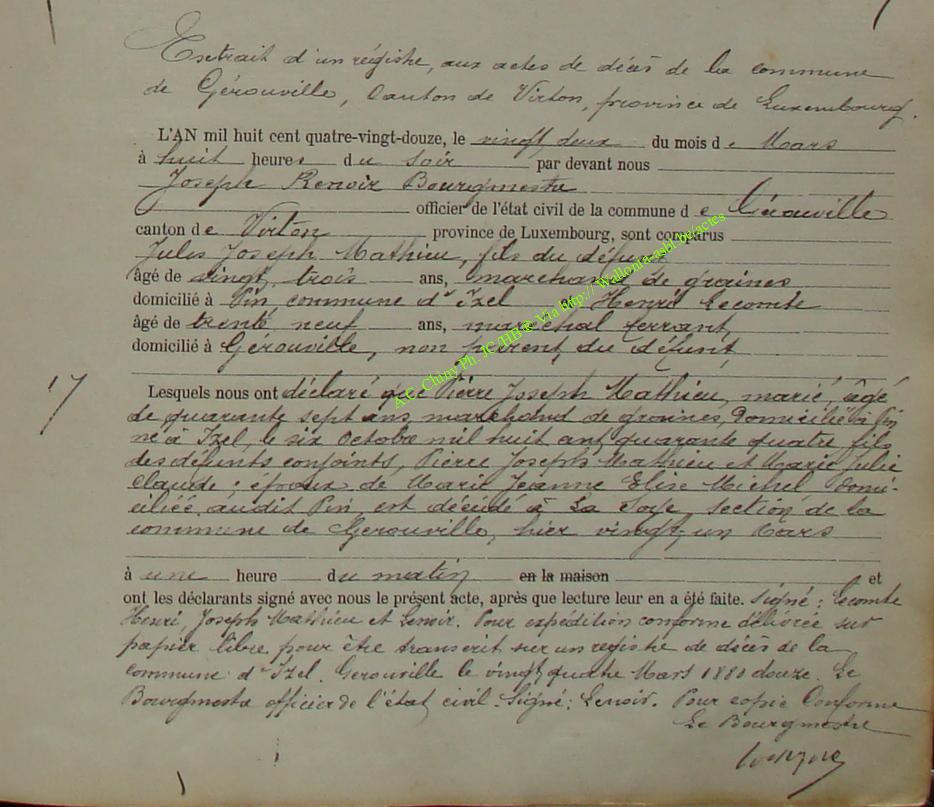 Extrait d'un régistre, aux actes de décès de la commune
de Gérouville, Canton de Virton, province de Luxembourg.
L'AN mil huit cent quatre-vingt-douze, le vingt deux du mois de Mars
à huit heures du soir par devant nous
Joseph Renoir Bourgmestre
officier de l'état civil de la commune de Gérouville
canton de Virton province de Luxembourg, sont comparus
Jules Joseph Mathieu, fils du défunt
âgé de vingt trois ans, marchand de graines
domicilié à Pin commune d'Izel et Henri Lecomte
âgé de trente neuf ans, maréchal ferrant,
domicilié à Gérouville, non parent du défunt
17
Lesquels nous ont déclaré que Pierre Joseph Mathieu, marié, âgé
de quarante sept ans, marchand de graines, Domicilié à Pin
né à Izel, le six Octobre mil huit cent quarante quatre, fils
des défunts conjoints, Pierre Joseph Mathieu et Marie Julie
Claude ; époux de Marie Jeanne Elise Michel Domi-
ciliée audit Pin, est décédé à La Soye, section de la
commune de Gerouville, hier vingt, un Mars
à une heure du matin en la maison et
ont les déclarants signé avec nous le présent acte, après que lecture leur en a été faite. Signé : Lecomte
Henri, Joseph Mathieu et Lenoir. Pour expédition conforme délivrée sur
papier libre pour être transcrit sur un registre de décès de la
commune d'Izel. Gerouville le vingt quatre Mars 1880 douze. Le
Bourgmestre officier de l'état civil. Signé : Lenoir. Pour copie Conforme
Le Bourgmestre
A.C. Chiny Ph. JC /HB/ie Via http:// Wallonia-asbl.be/actes